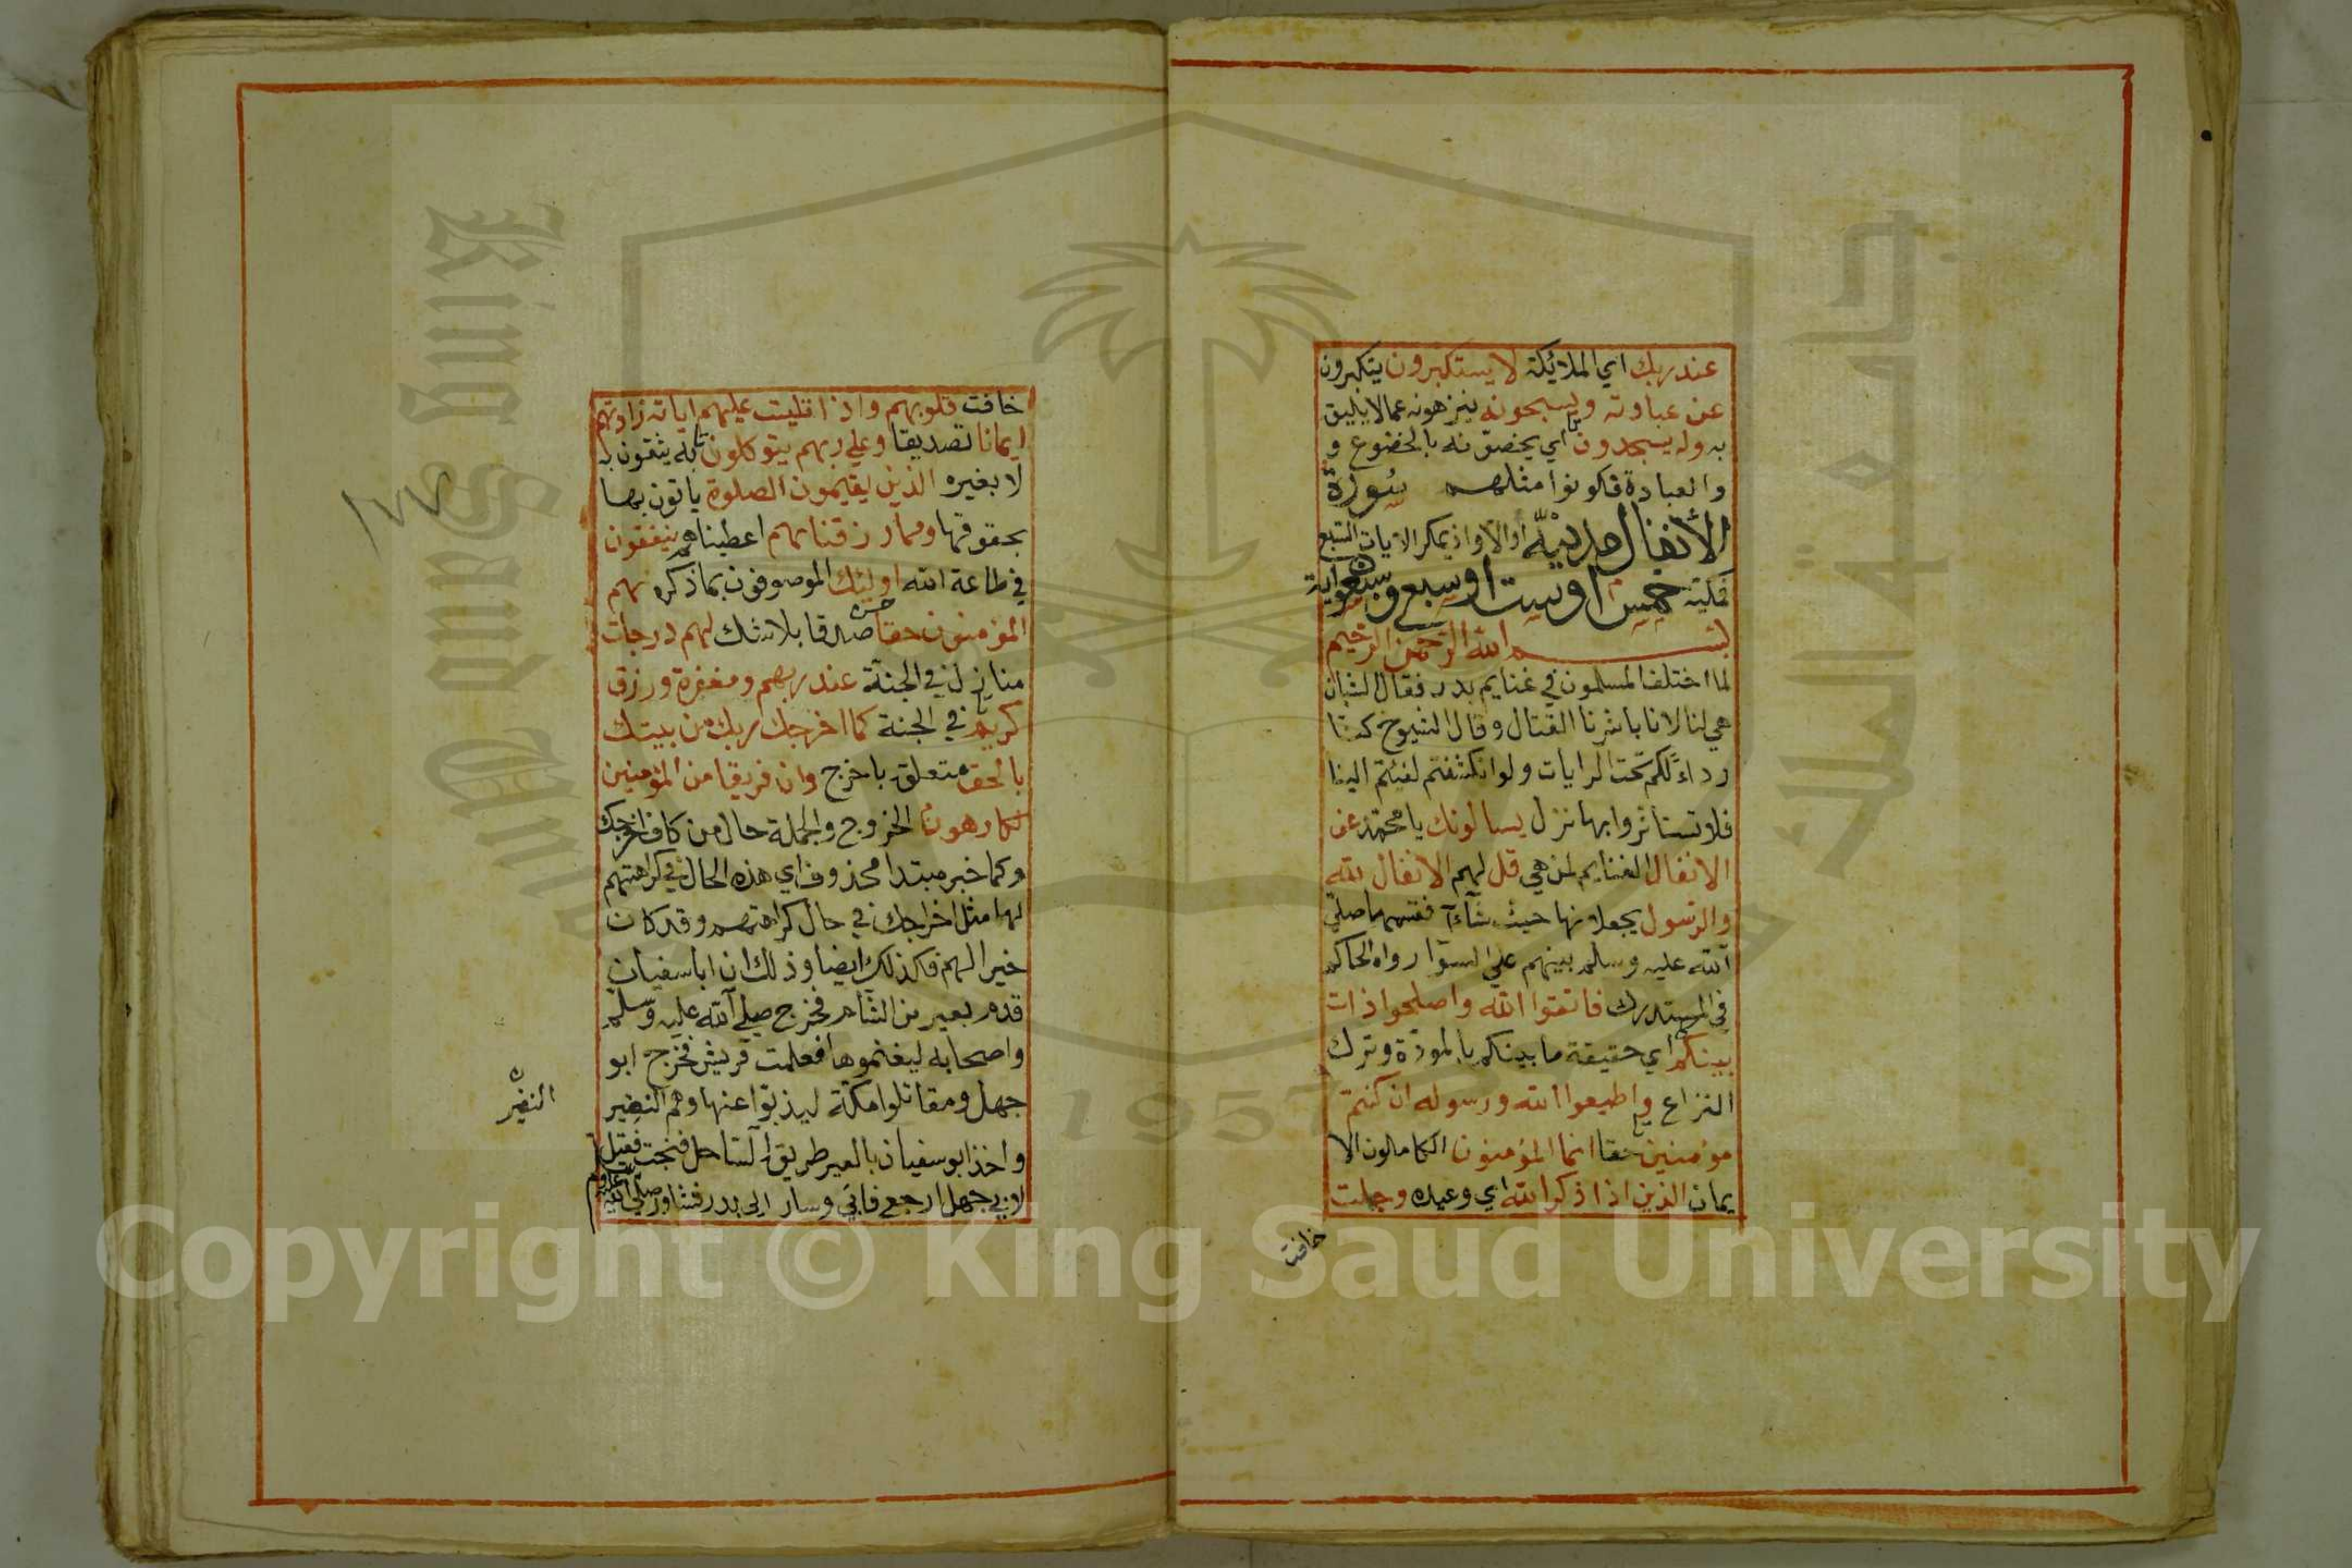 عند ربك اي الملائكة لا يستكبرون يتكبرون
عن عبادته ويسبحونه ينزهونه عما لا يليق
به وله يسجدون اي يخصونه بالخضوع و
والعبادة فكونوا مثلهم سورة
الأنفال مدنية او الا واذ يمكر الايات السبع
فمكية خمس او ست او سبع وسبعون اية
بسم الله الرحمن الرحيم
لما اختلف المسلمون في غنايم بدر فقال الشبان
هي لنا لانا باشرنا القتال وقال الشيوخ كنا
رداءً لكم تحت الرايات ولو انكشفتم لفئتم الينا
فلا تستاثروا بها نزل يسالونك يا محمد عن
الانفال الغنايم لمن هي قل لهم الانفال لله
والرسول يجعلانها حيث شاءآ فقسمها صلى
الله عليه وسلم بينهم على السوا رواه الحاكم
في المستدرك فاتقوا الله واصلحوا ذات
بينكم اي حقيقة ما بينكم بالمودة وترك
النزاع واطيعوا الله ورسوله ان كنتم
مؤمنين حقا انما المؤمنون الكاملون الا
يمان الذين اذا ذكر الله اي وعيده وجلت
خافت
خافت قلوبهم واذا تليت عليهم اياته زادتهم
ايمانا تصديقا وعلى ربهم يتوكلون به يثقون
لا بغيره الذين يقيمون الصلوة ياتون بها
بحقوقها ومما رزقناهم اعطيناهم ينفقون
في طاعة الله اولئك الموصوفون بما ذكر هم
المؤمنون حقا صدقا بلا شك لهم درجات
منازل في الجنة عند ربهم ومغفرة ورزق
كريم في الجنة كما اخرجك ربك من بيتك
بالحق متعلق باخرج وان فريقا من المؤمنين
لكارهون الخروج والجملة حال من كاف اخرجك
وكما خبر مبتدا محذوف اي هذه الحال في كراهتهم
لها مثل اخراجك في حال كراهتهم وقد كان
خيرا لهم فكذلك ايضا وذلك ان ابا سفيان
قدم بعير من الشام فخرج صلى الله عليه وسلم
واصحابه ليغنموها فعلمت قريش فخرج ابو
جهل ومقاتلوا مكة ليذبوا عنها وهم النفير
واخذ ابو سفيان بالعير طريق الساحل فنجت فقيل
لابي جهل ارجع فابى وسار الى بدر فشاور صلى الله
عليه وسلم
النفير
١٧٧
King Saud University
جامعة الملك سعود
1957
Copyright © King Saud University